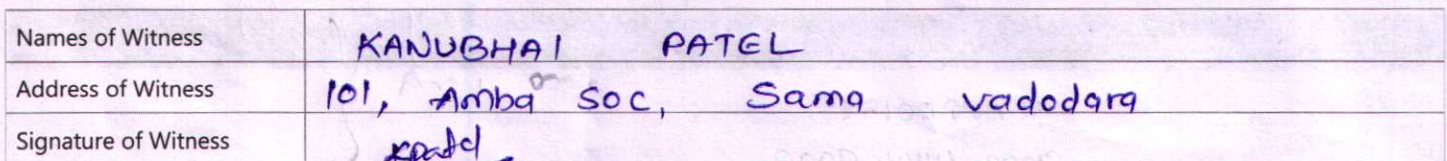 Names of Witness KANUBHAI PATEL
Address of Witness 101, Amba soc, Sama vadodara
Signature of Witness kpatel